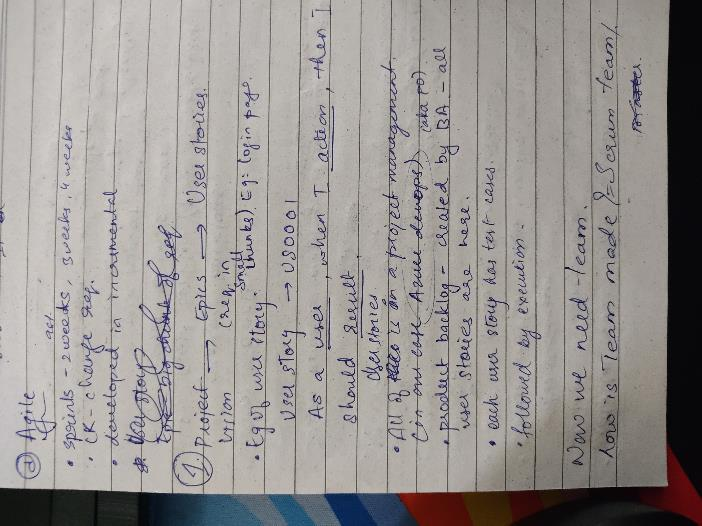 ② Agile
• sprints - 2 weeks, 3 weeks, 4 weeks
• CR - change req.
• developed in incremental
User story
Epic - big chunk of req
①. Project → Epics → User stories.
Vision (req in small chunks) Eg: login page.
• Eg of user story:
User story → US0001
As a user, when I action, then I
should result.
• All user stories is in a project management
(in our case Azure devops) (aka PO)
• product backlog - created by BA - all
user stories are here.
• each user story has test cases.
• followed by execution.
Now we need team.
how is Team made? = Scrum team/